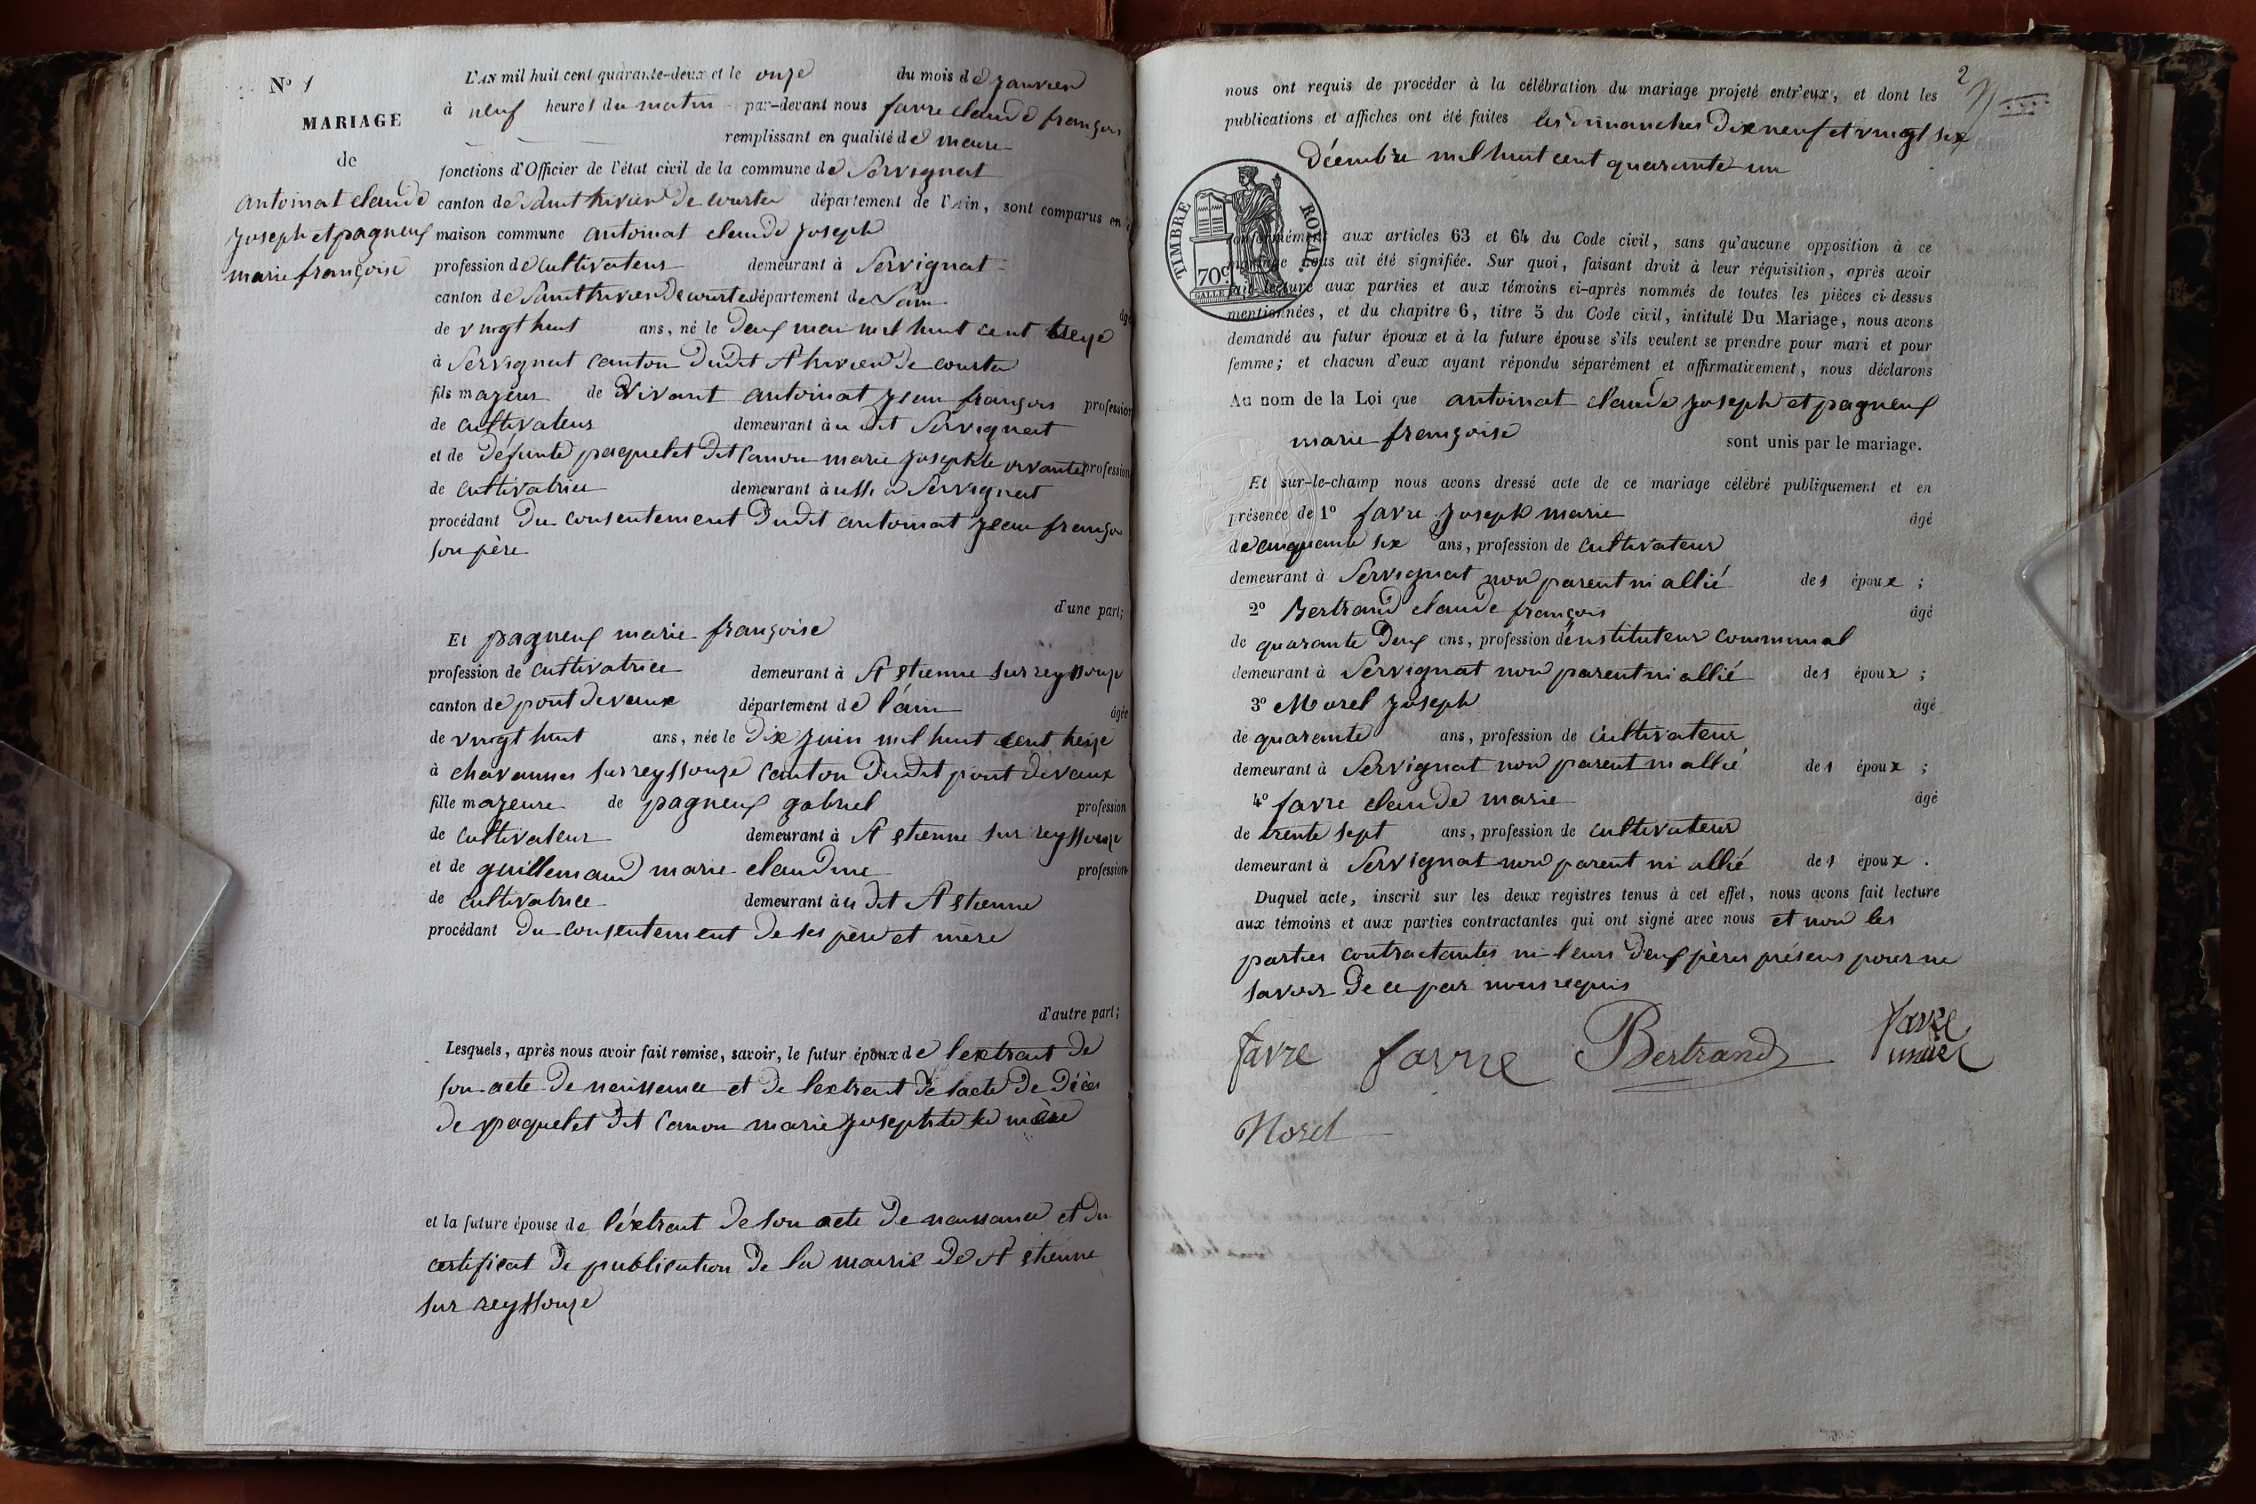 N° 1
MARIAGE
de
antoinat claude
joseph et pagneux
marie françoise
L'AN mil huit cent quarante-deux et le onze du mois de janvier
à neuf heures du matin par-devant nous favre claude françois
remplissant en qualité de maire
fonctions d'Officier de l'état civil de la commune de Servignat
canton de Saint trivier de courtes département de l'Ain, sont comparus en
maison commune antoinat claude joseph
profession de cultivateur demeurant à Servignat
canton de Saint trivier de courtes département de l'ain
âgé
de vingt huit ans, né le deux mai mil huit cent treize
à Servignat canton dudit St trivier de courtes
fils majeur de vivant antoinat jean françois profession
de cultivateur demeurant au dit Servignat
et de défunte paquelet dit Canon marie josephte vivante profession
de cultivatrice demeurant aussi à Servignat
procédant du consentement dudit antoinat jean françois
son père
d'une part;
Et pagneux marie françoise
profession de cultivatrice demeurant à St étienne sur reyssouze
canton de pont devaux département de l'ain âgée
de vingt huit ans, née le dix juin mil huit cent treize
à chavannes sur reyssouze canton dudit pont devaux
fille majeure de pagneux gabriel profession
de cultivateur demeurant à St étienne sur reyssouze
et de guillemaud marie claudine profession
de cultivatrice demeurant au dit St étienne
procédant du consentement de ses père et mère
d'autre part;
Lesquels, après nous avoir fait remise, savoir, le futur époux de l'extrait de
son acte de naissance et de l'extrait de l'acte de décès
de paquelet dit Canon marie josephte sa mère
et la future épouse de l'éxtrait de son acte de naissance et du
certificat de publication de la mairie de St étienne
sur reyssouze
2
nous ont requis de procéder à la célébration du mariage projeté entr'eux, et dont les
publications et affiches ont été faites les dimanches dix neuf et vingt six
décembre mil huit cent quarante un
TIMBRE ROYAL
70c
conformément aux articles 63 et 64 du Code civil, sans qu'aucune opposition à ce
mariage nous ait été signifiée. Sur quoi, faisant droit à leur réquisition, après avoir
fait lecture aux parties et aux témoins ci-après nommés de toutes les pièces ci-dessus
mentionnées, et du chapitre 6, titre 5 du Code civil, intitulé Du Mariage, nous avons
demandé au futur époux et à la future épouse s'ils veulent se prendre pour mari et pour
femme; et chacun d'eux ayant répondu séparément et affirmativement, nous déclarons
Au nom de la Loi que antoinat claude joseph et pagneux
marie françoise sont unis par le mariage.
Et sur-le-champ nous avons dressé acte de ce mariage célébré publiquement et en
présence de 1° favre joseph marie âgé
de cinquante six ans, profession de cultivateur
demeurant à Servignat non parent ni allié des époux;
2° Bertrand claude françois âgé
de quarante deux ans, profession d'instituteur communal
demeurant à Servignat non parent ni allié des époux;
3° Morel joseph âgé
de quarante ans, profession de cultivateur
demeurant à Servignat non parent ni allié des époux;
4° favre claude marie âgé
de trente sept ans, profession de cultivateur
demeurant à Servignat non parent ni allié des époux.
Duquel acte, inscrit sur les deux registres tenus à cet effet, nous avons fait lecture
aux témoins et aux parties contractantes qui ont signé avec nous et non les
parties contractantes ni leurs deux pères présens pour ne
savoir de ce par nous requis
favre favre Bertrand favre
maire
Morel